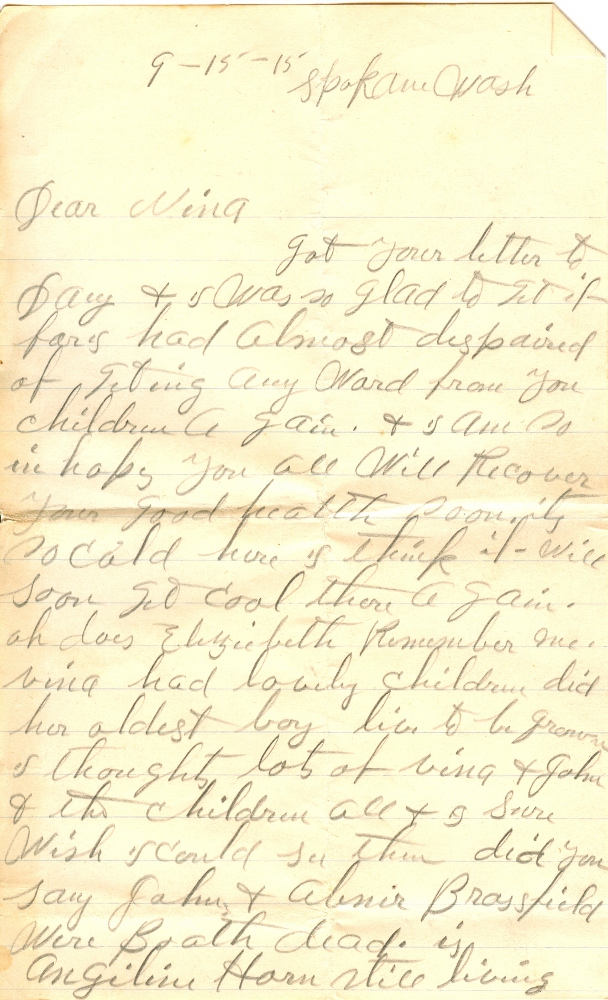 9-15-15
Spokane Wash
Dear Nina
Got your letter to
Day & I Was so glad to Get it
for I had Almost despaired
of Geting Any Word from you
children A gain. & I Am So
in hops you All Will Recover
your Good health Soon. its
So Cold here I think it Will
Soon Get Cool there A gain.
oh does Eliziebeth Remember me.
vina had lovely children did
her oldest boy live to be grown
I thought lots of vina & John
& the children All & I Sure
Wish I Could See them did you
say John & Abnir Brassfield
Were Boath dead. is
Angiline Horn Still living